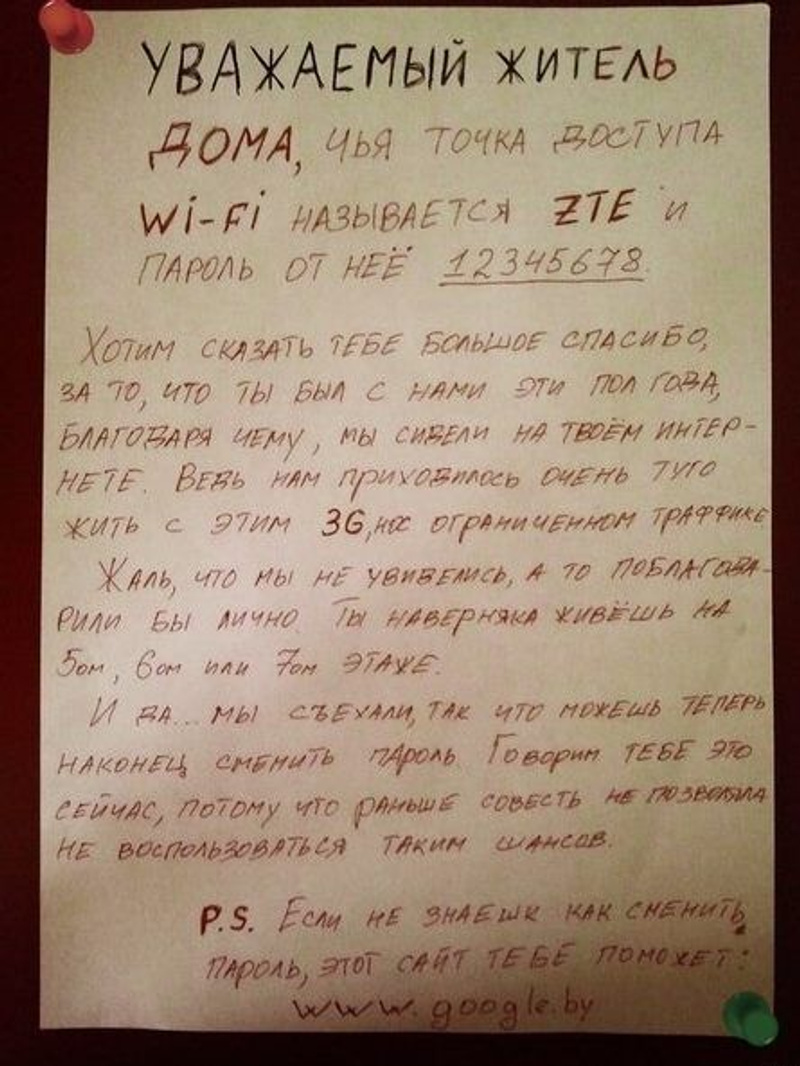 УВАЖАЕМЫЙ ЖИТЕЛЬ
ДОМА, ЧЬЯ ТОЧКА ДОСТУПА
Wi-Fi НАЗЫВАЕТСЯ ZTE И
ПАРОЛЬ ОТ НЕЁ 12345678.
Хотим сказать тебе большое спасибо,
за то, что ты был с нами эти пол года,
благодаря чему, мы сидели на твоём интер-
нете. Ведь нам приходилось очень туго
жить с этим 3G, ограниченном траффике
Жаль, что мы не увиделись, а то поблагода-
рили бы лично. Ты наверняка живёшь на
5ом, 6ом или 7ом этаже.
И да... мы съехали, так что можешь теперь
наконец сменить пароль. Говорим тебе это
сейчас, потому что раньше совесть не позволяла
не воспользоваться таким шансов.
P.S. Если не знаешк как сменить
пароль, этот сайт тебе поможет:
www.google.by